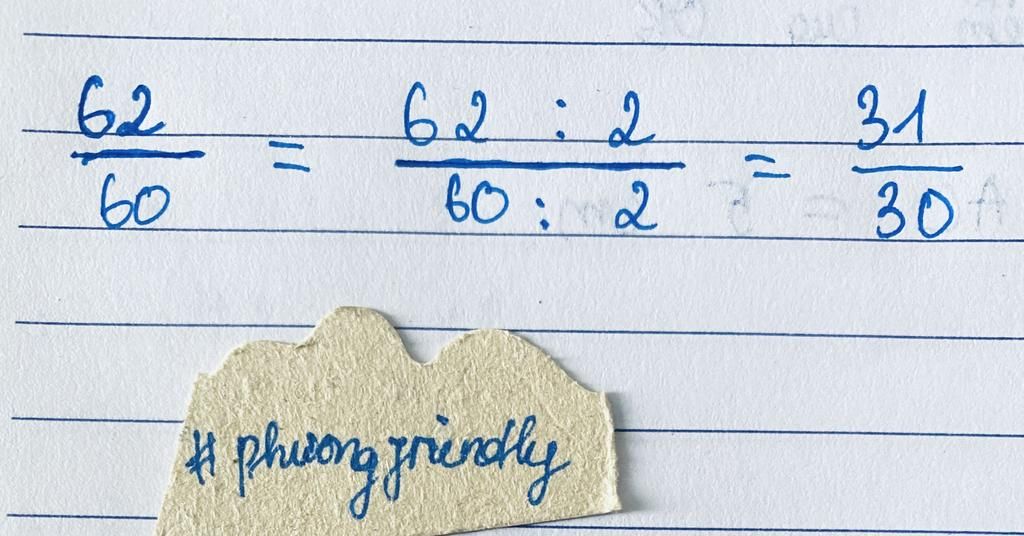 62/60 = 62 : 2/60 : 2 = 31/30
#phuongfriendly